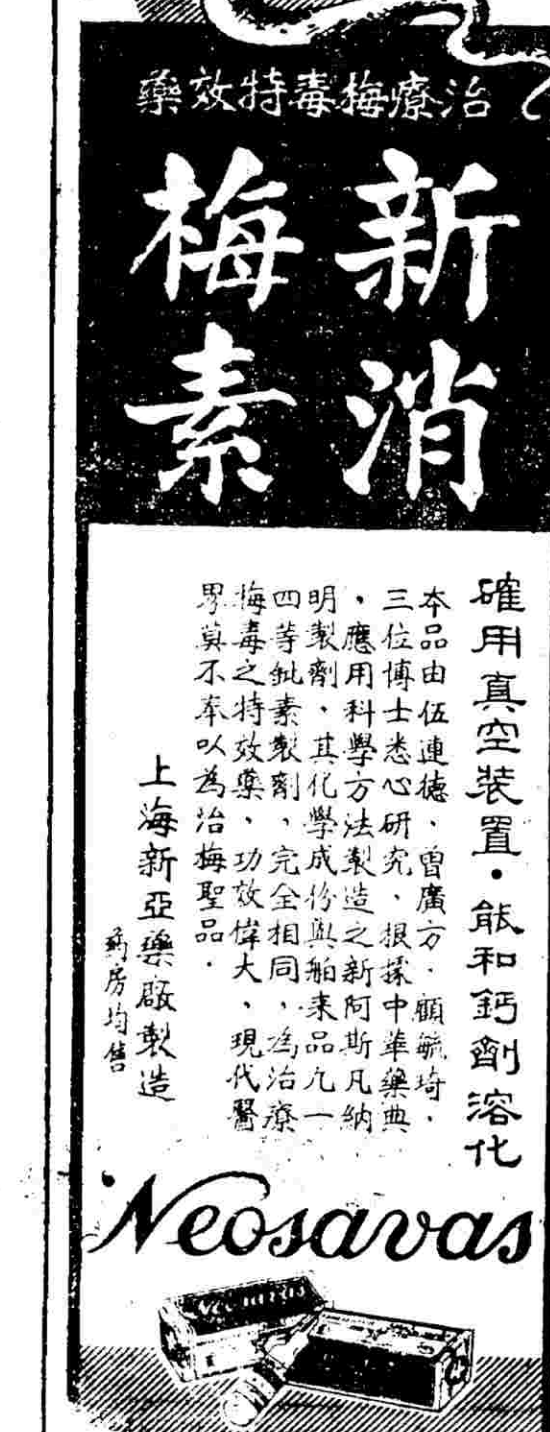 治療梅毒特效藥
新消
梅素
確用真空装置·能和鈣劑溶化
本品由伍連德、曾廣方、顧毓琦、
三位博士悉心研究、根據中華藥典
，應用科學方法製造之新阿斯凡納
明製劑、其化學成份與舶來品九一
四等砒素製劑，完全相同，為治療
梅毒之特效藥、功效偉大、現代醫
界莫不奉以為治梅聖品。
上海新亞藥廠製造
药房均售
Neosavas
Neosavas